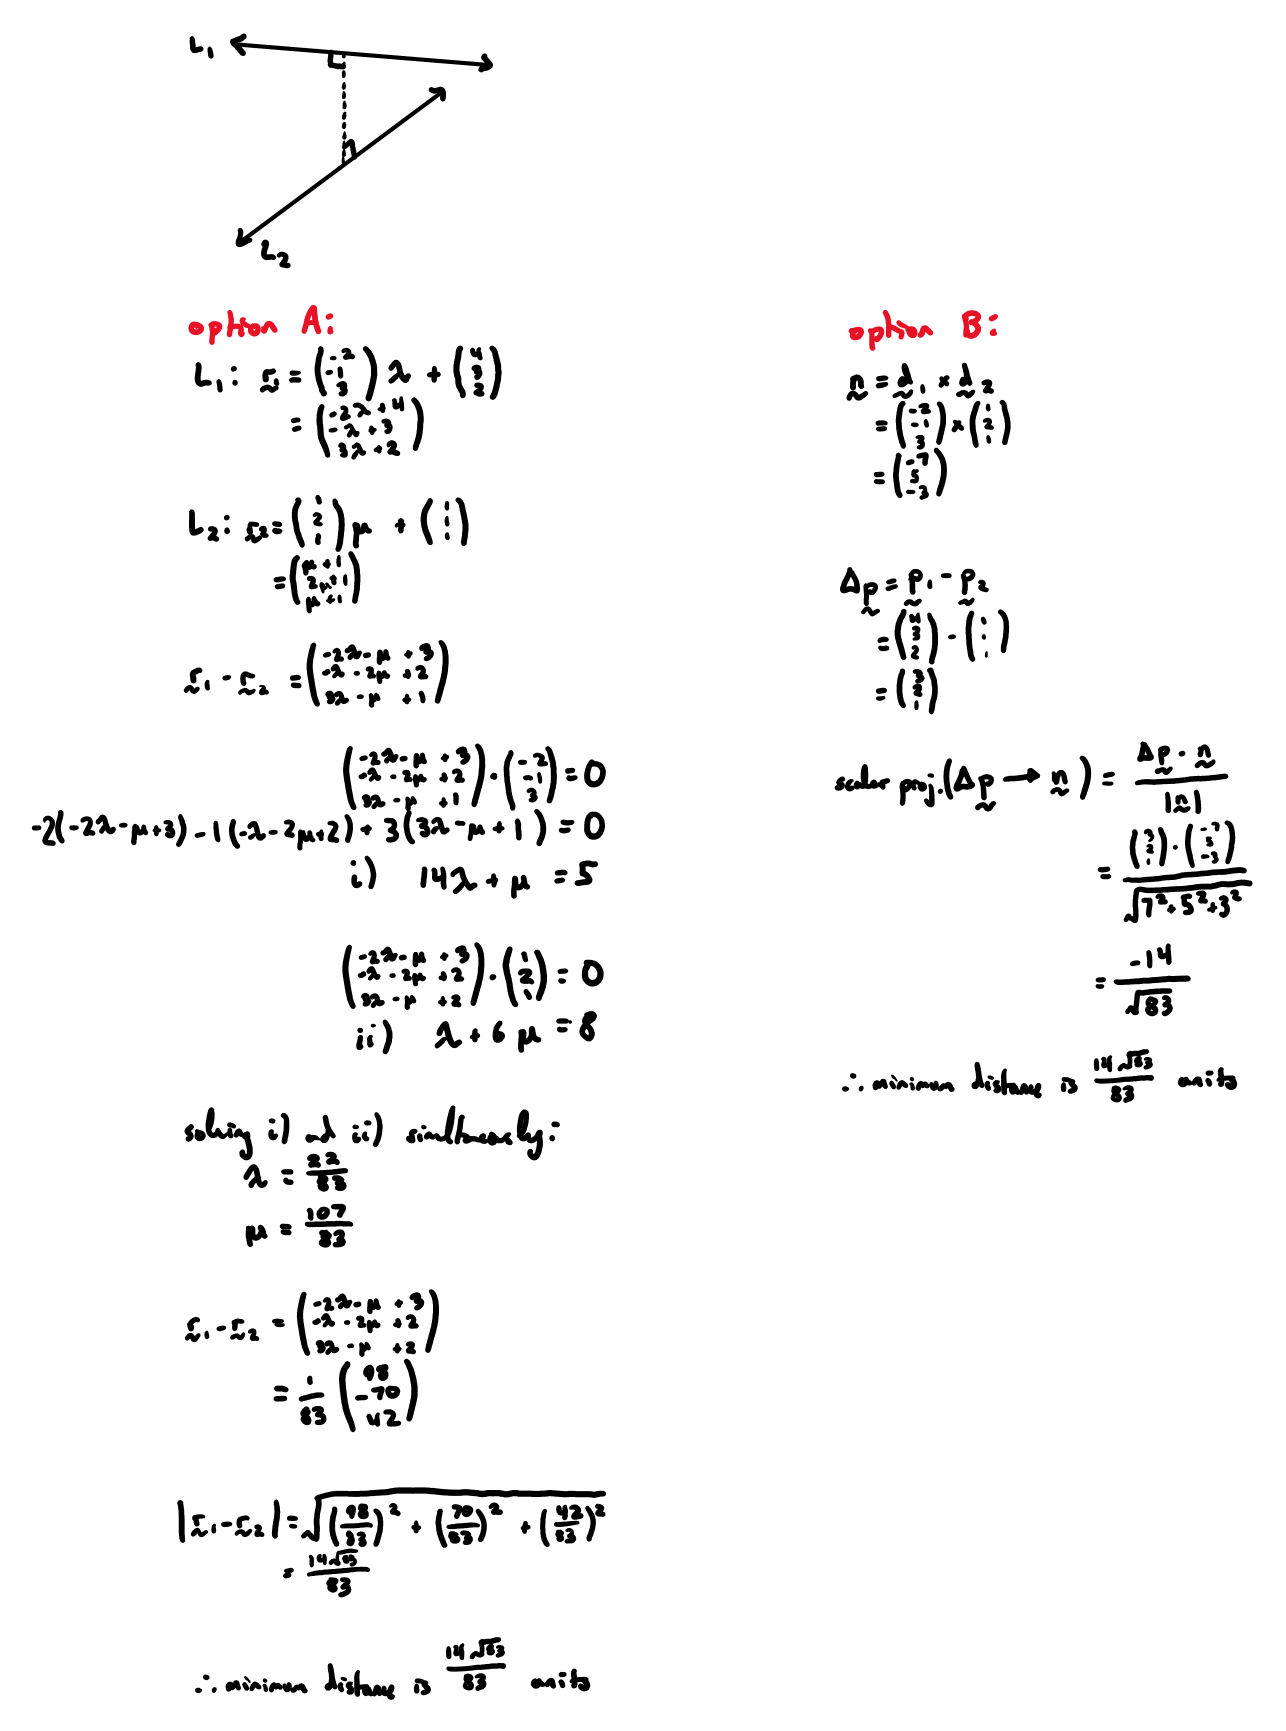 L₁
L₂
option A:
L₁: r₁ = (-2, -1, 3) λ + (4, 3, 2)
= (-2λ+4, -λ+3, 3λ+2)
L₂: r₂ = (1, 2, 1) μ + (1, 1, 1)
= (μ+1, 2μ+1, μ+1)
r₁ - r₂ = (-2λ-μ+3, -λ-2μ+2, 3λ-μ+1)
(-2λ-μ+3, -λ-2μ+2, 3λ-μ+1) · (-2, -1, 3) = 0
-2(-2λ-μ+3) - 1(-λ-2μ+2) + 3(3λ-μ+1) = 0
i) 14λ + μ = 5
(-2λ-μ+3, -λ-2μ+2, 3λ-μ+2) · (1, 2, 1) = 0
ii) λ + 6μ = 8
solving i) and ii) simltaneously:
λ = 22/83
μ = 107/83
r₁ - r₂ = (-2λ-μ+3, -λ-2μ+2, 3λ-μ+2)
= 1/83 (98, -70, 42)
|r₁ - r₂| = √((98/83)² + (70/83)² + (42/83)²)
= 14√83/83
∴ minimum distance is 14√83/83 units
option B:
n = d₁ × d₂
= (-2, -1, 3) × (1, 2, 1)
= (-7, 5, -3)
Δp = p₁ - p₂
= (4, 3, 2) - (1, 1, 1)
= (3, 2, 1)
scalar proj.(Δp → n) = Δp · n / |n|
= (3, 2, 1) · (-7, 5, -3) / √(7²+5²+3²)
= -14/√83
∴ minimum distance is 14√83/83 units